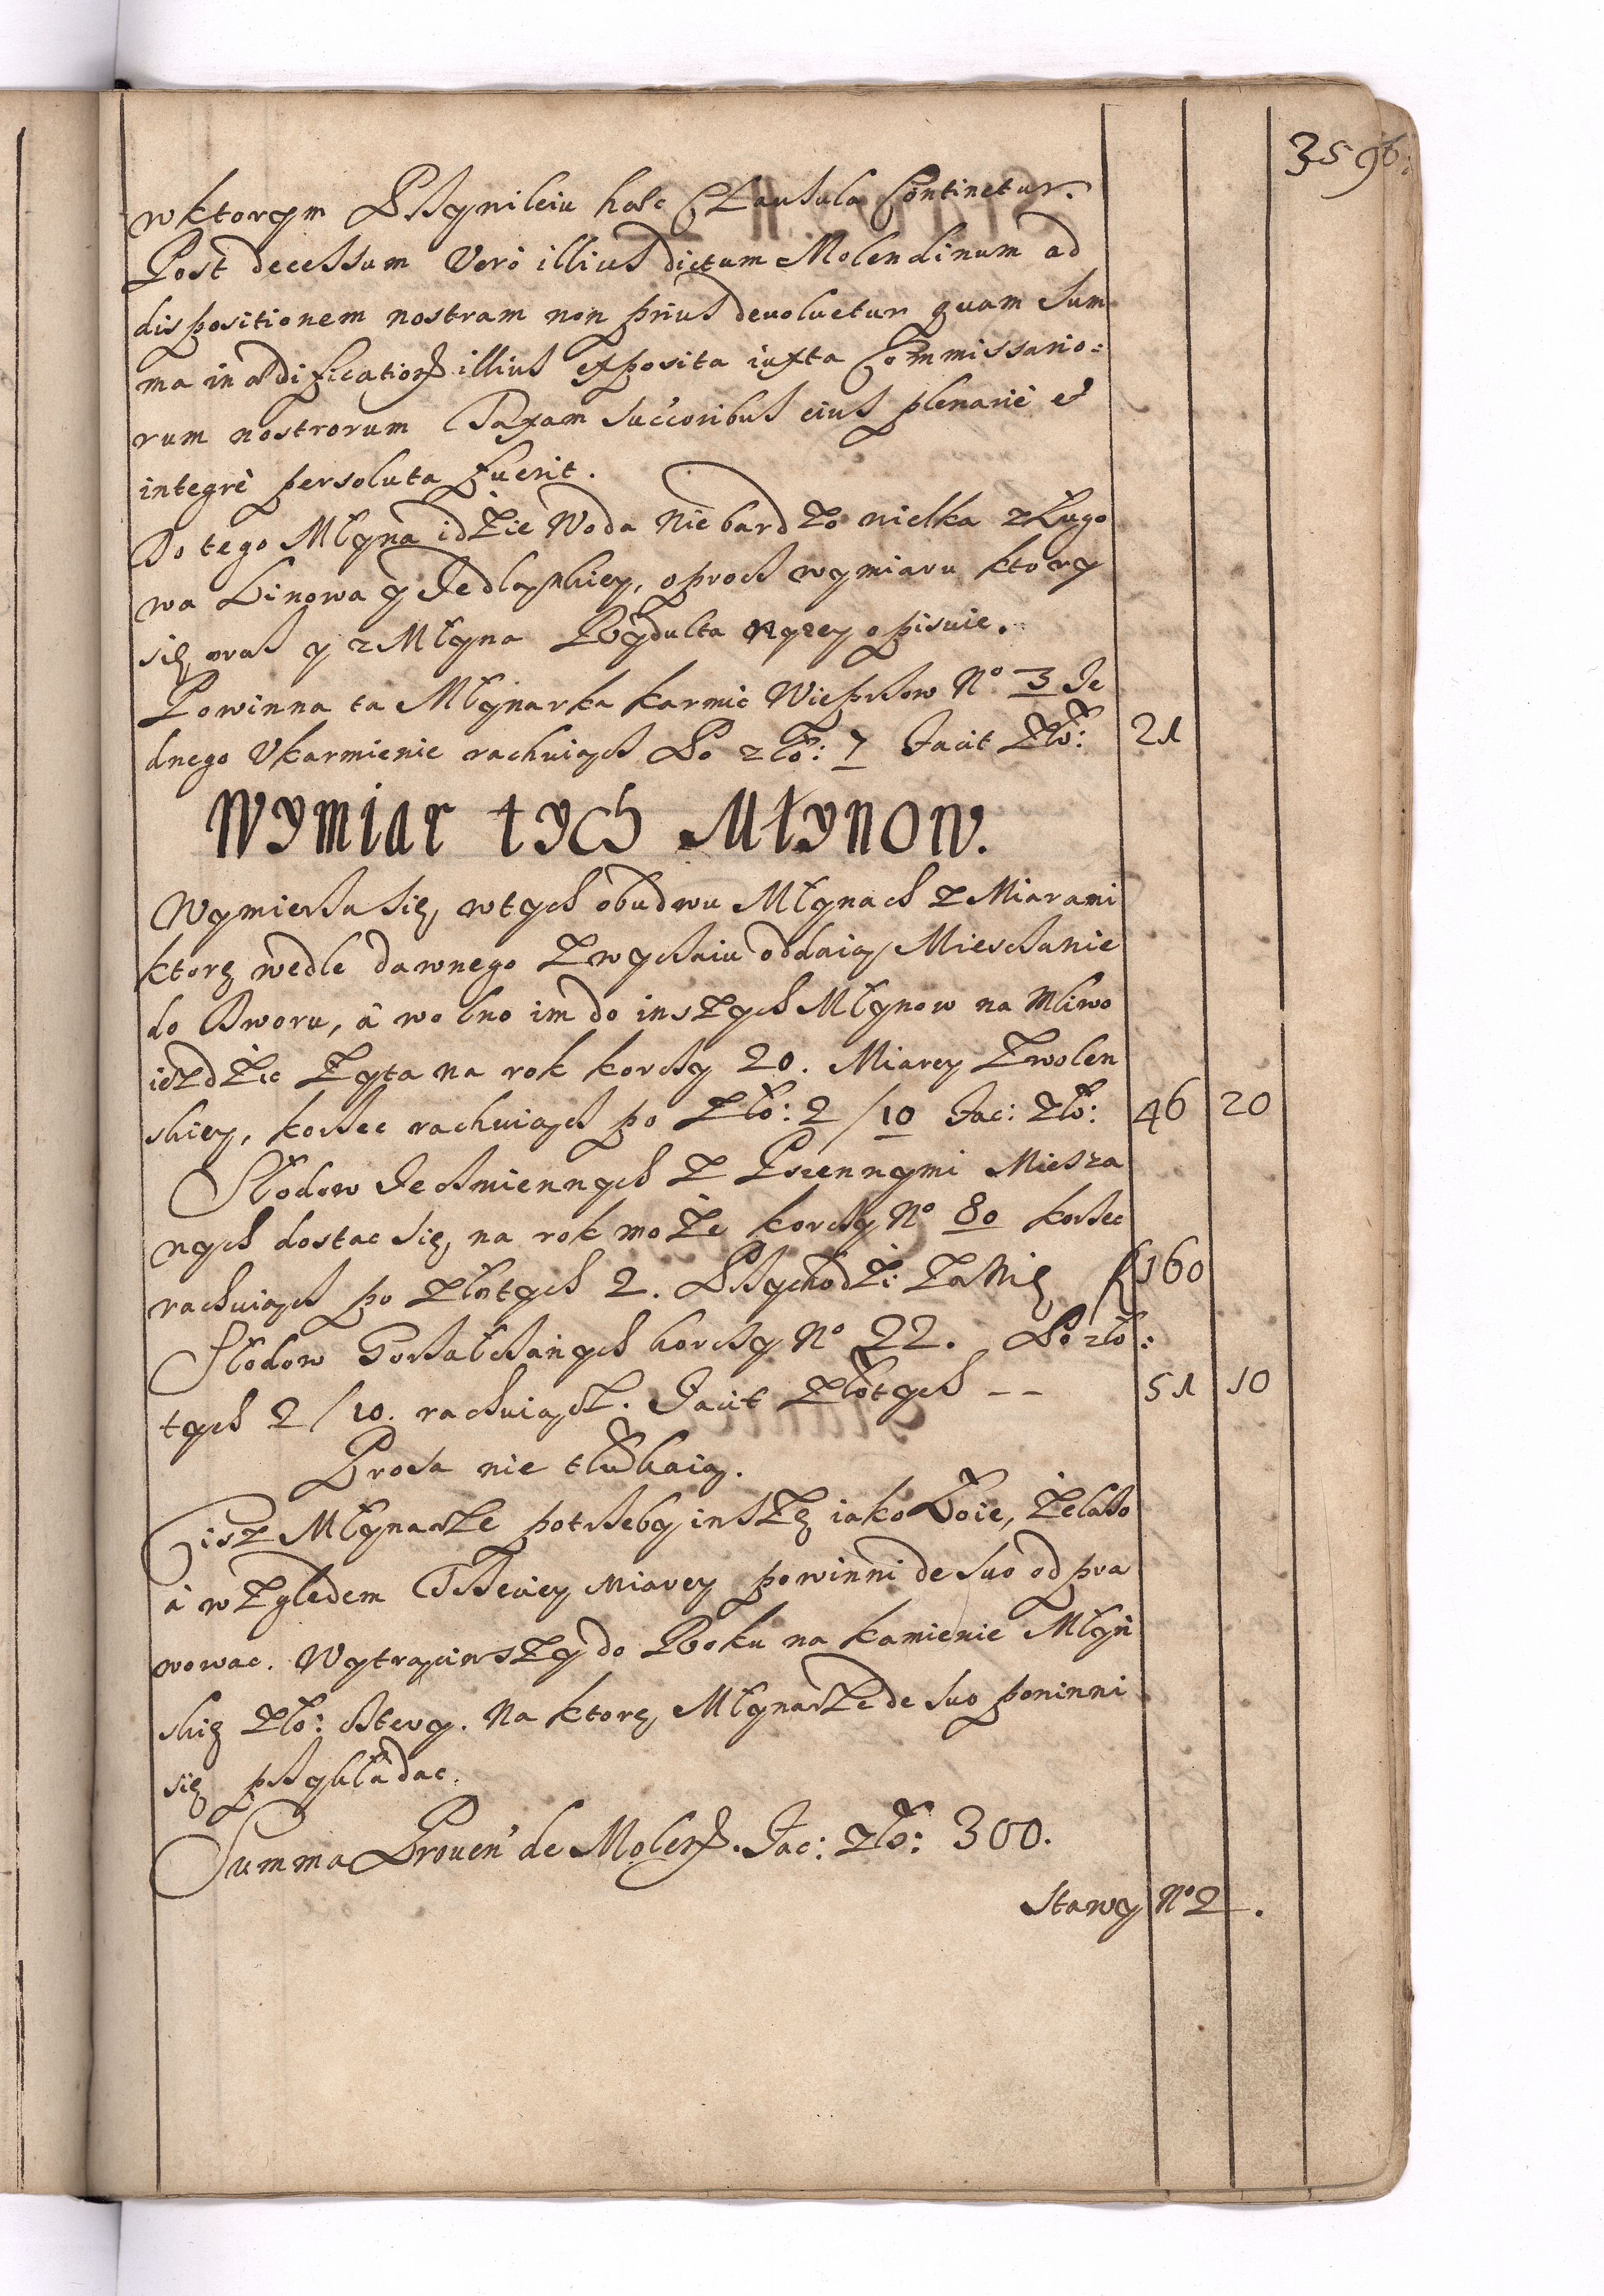 3596:
w ktorym Przywileiu haec Clausula Continetur.
Post decessum Verò illius dictum Molendinum ad
dispositionem nostram non prius devoluetur quam Sum
ma in ædification illius exposita iuxta Commissario=
rum nostrorum Taxam Succoribus eius plenariè et
integrè persoluta fuerit.
Do tego Młyna idzie Woda nie bardzo wielka z Ługo
wa Linowa y Jedlanskiey, oprocz wymiaru ktory
się oraz y z Młyna Rydulta wyzey opisuie.
Powinna ta Młynarka karmic Wieprzow No 3 Je
dnego Vkarmienie rachuiącz Po zło: 7 Facit Zło: 21
Wymiar tych Młynow.
Wymierza Się, w tych obudwu Młynach z Miarami
ktorę wedle dawnego Zwyczaiu oddaią Miesczanie
do Dworu, á wolno im do inszych Młynow na Mliwo
iezdzic Zyta na rok korczy 20. Miarey Zwolen
skiey, korzec rachuiącz po Zło: 2/10 Fac: Zło: 46 20
Słodow Jeczmiennych z Pszennymi Miesza
nych dostac Się, na rok może korczy No 80 korzec
rachuiącz po złotych 2. Przychodzi: Zanię f 160
Słodow Gorzałczanych korczy No 22. Po zło:
tych 2/10. rachuiącz. Facit Złotych -- 51 10
Prosa nie tłukaią.
Cisz Młynarze potrzeby inszę iako Łoie, żelazo
á względem Trzeciey Miarey powinni de Suo odpra
wowac. Wytrąciwszy do Roku na kamienie Młyń
skię Zło: cztery. Na ktorę, Młynarze de Suo powinni
się przykładac.
Summa Prouen' de Molend. Fac: zło: 300.
Stawy No 2.